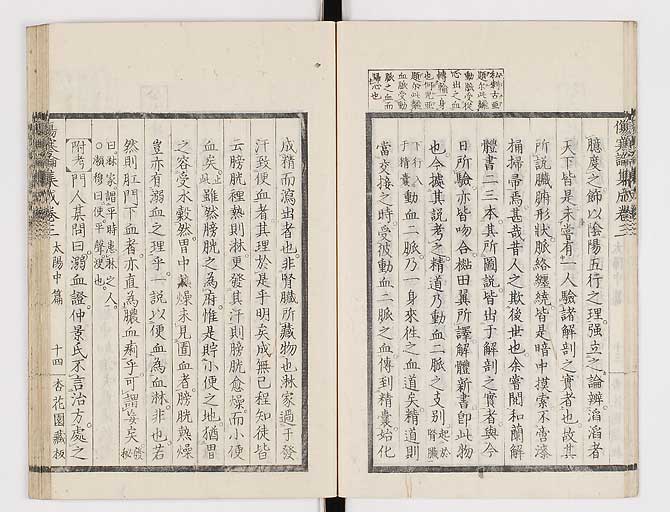 臆度之。飾以陰陽五行之理。强立之論辨。滔滔者
天下皆是。未嘗有一人驗諸解剖之實者也。故其
所說臟腑形狀。脈絡纏繞。皆是暗中摸索。不啻漆
桶掃帚。焉甚哉昔人之欺後世也。余嘗閱和蘭解
體書二三本。其所圖說。皆出于解剖之實者。與今
日所驗。亦皆吻合。槪田翼所譯解體新書。卽此物
也。今據其說考之。精道乃動血二脈之支別。起於腎臟
下行入于精囊動血二脈乃一身來往之血道矣。精道則
當交接之時。受彼動血二脈之血。傳到精囊。始化
成精而瀉出者也。非腎臟所藏物也。淋家過于發
汗致便血者。其理於是乎明矣。成無已程知徒皆
云。膀胱裡熱則淋。更發其汗。則膀胱愈燥。而小便
血矣。止此雖然膀胱之為府。惟是貯小便之地。猶胃
之容受水穀。然胃中燥。未見直血者。膀胱熱燥。
豈亦有溺血之理乎。一說以便血為血淋。非也。若
然則肛門下血者。亦直為膿血痢乎。可謂妄矣。錢秘
曰淋家謂平時患淋之人。
瀕穆曰使平聲浸也
附考 門人某問曰。溺血證。仲景氏不言治方。處之
傷寒論集成卷三
太陽中篇
十四
杏花園藏板
傷寒論集成卷三